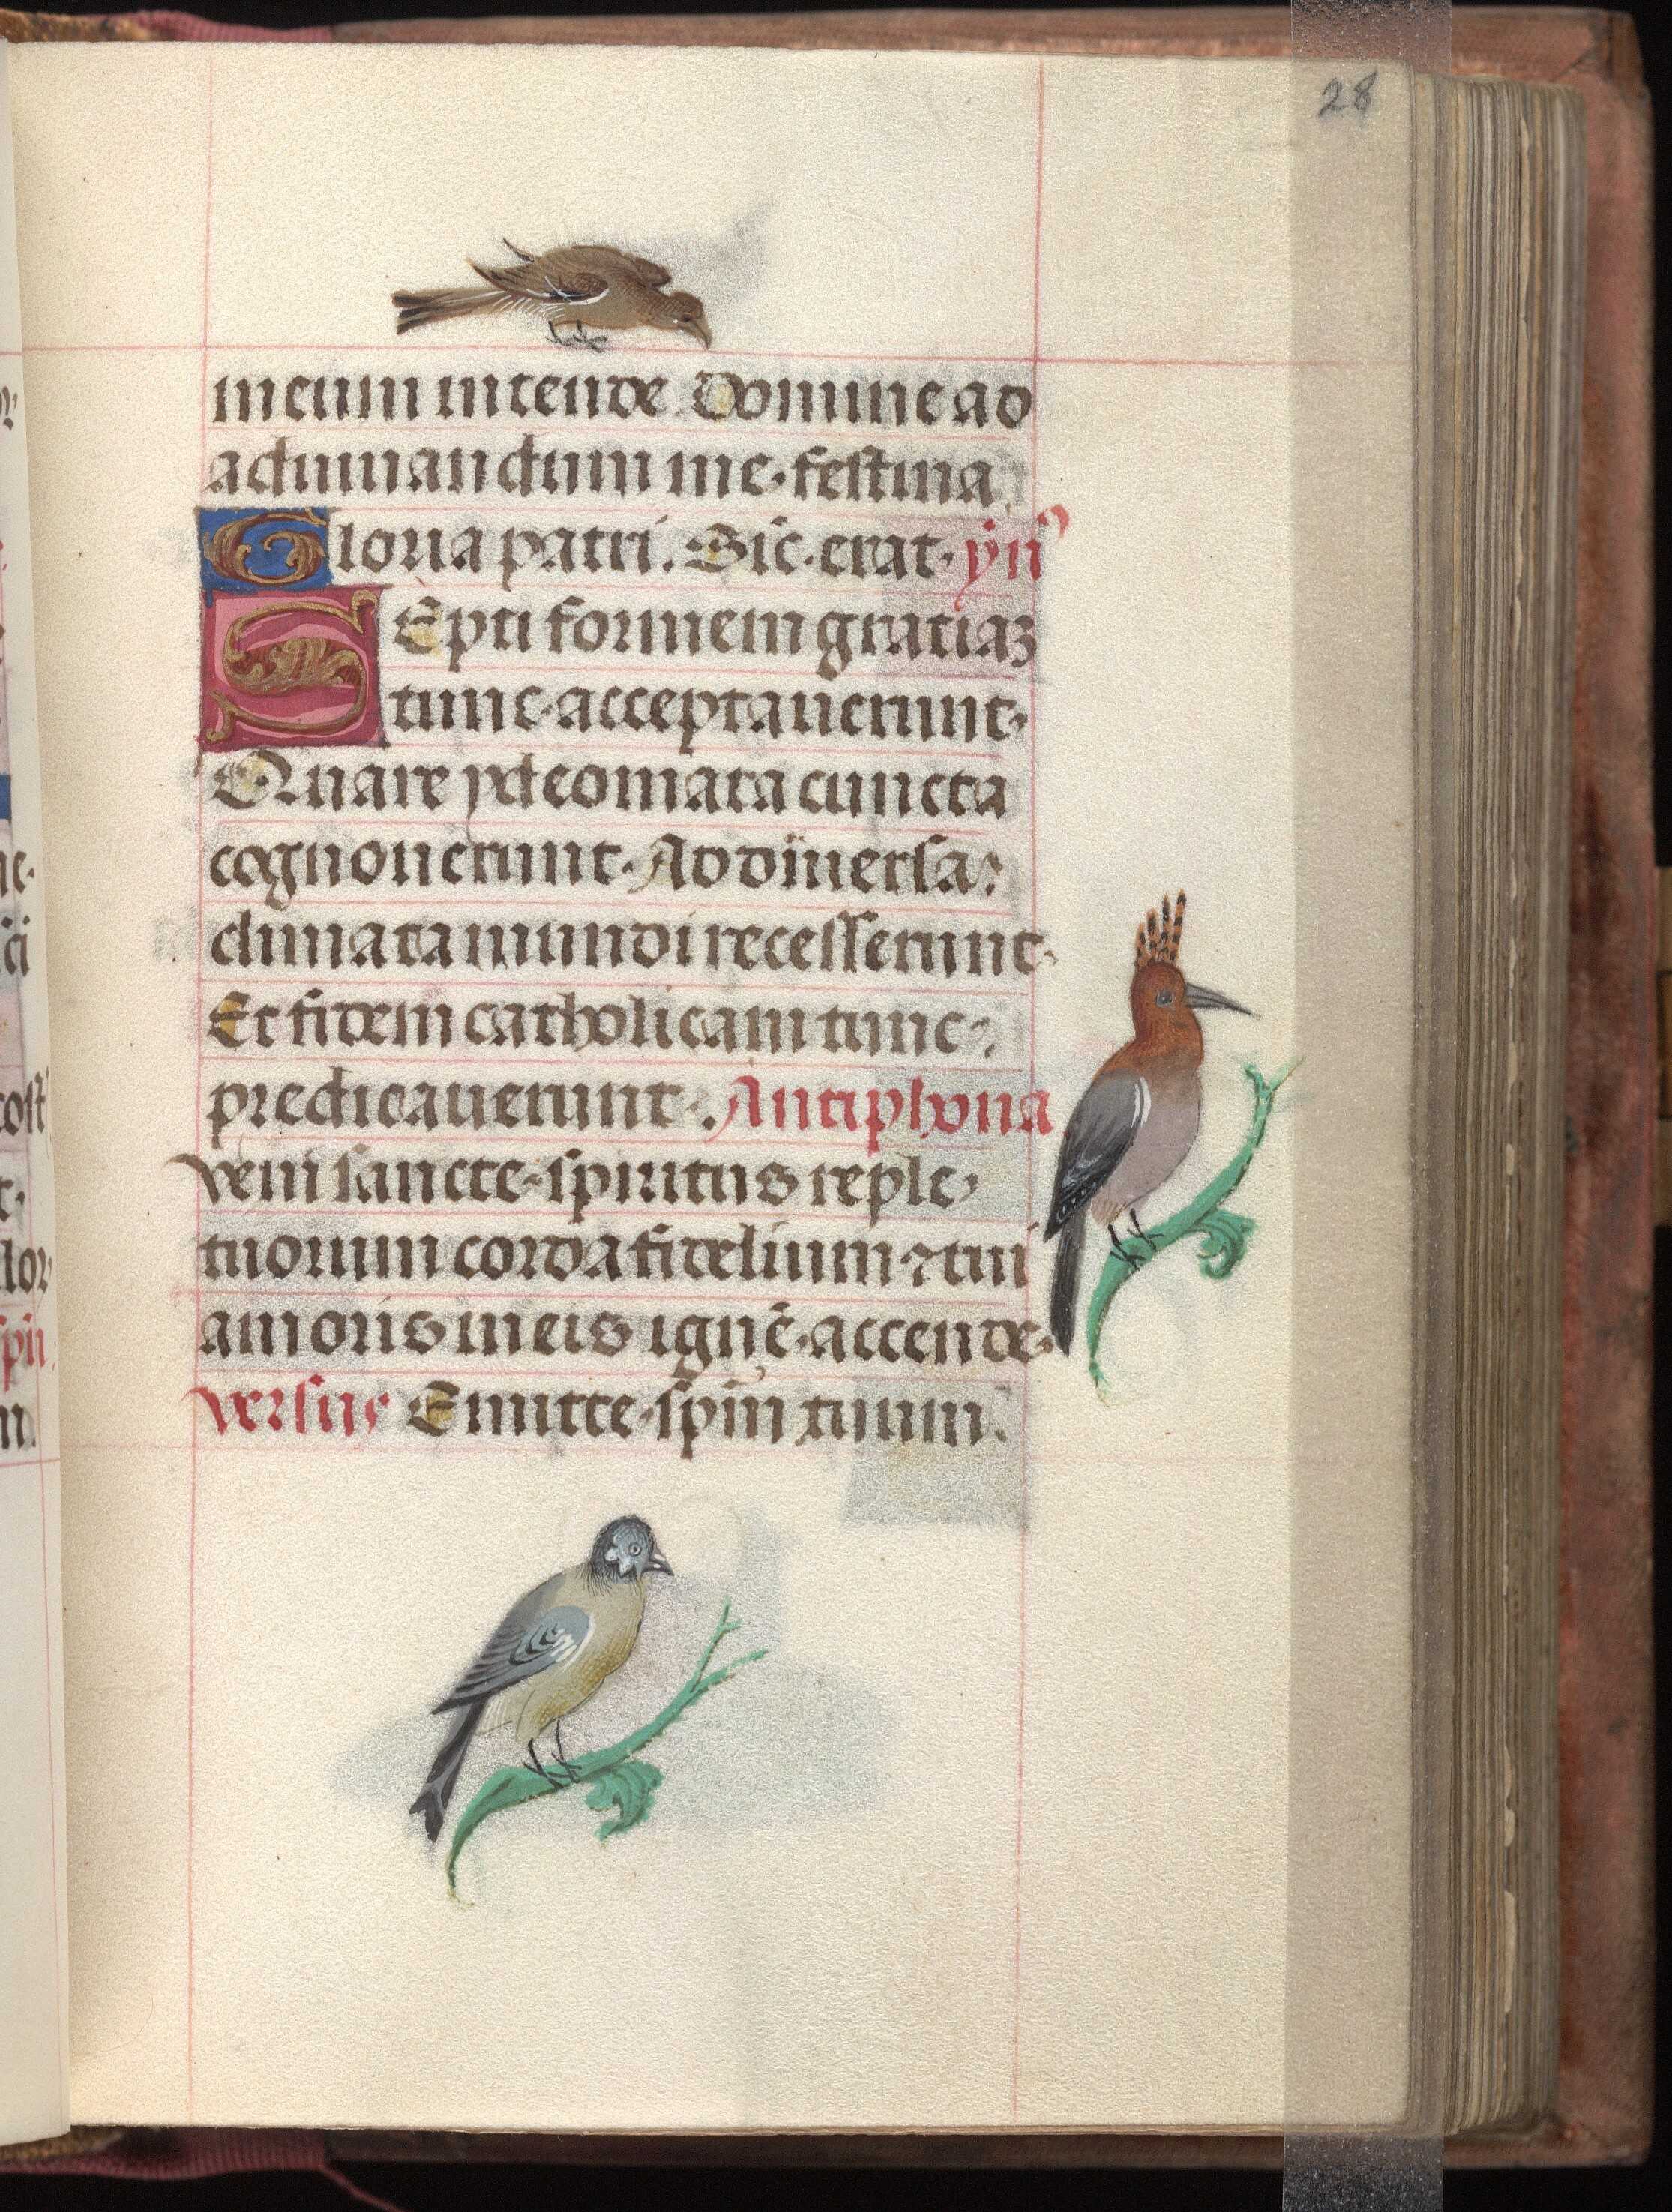 28
meum intende. Domine ad
adiuuandum me. festina
Gloria patri. Sic. erat. ÿn̄
SEpti formem gratiaʒ
tunc. acceptauerunt.
Quare ydeomata cuncta
cognouerunt. Ad diuersa.
climata mundi recesserunt.
Et fidem catholicam tunc.
predicauerunt. Antiphona
veni sancte. spiritus reple.
tuorum corda fidelium ⁊ tui
amoris ineis ignē. accende.
versus Emitte. spm̄ tuum.